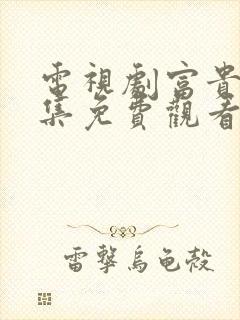 電視劇富貴
集免費觀看
雷擊烏龜殼